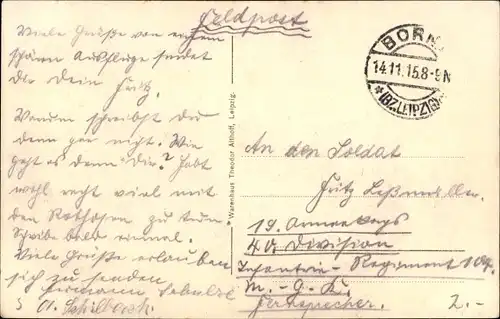 Feldpost
Viele Grüße von einem
schönen Ausfluge sendet
Dir Dein Fritz.
Warum schreibst du
denn gar nicht. Wie
geht es denn Dir? Habt
wohl recht viel mit
den Rothosen zu tun
Schreibe bald einmal.
Viele Grüße erlauben
sich zu senden
Hermann
BORN
14.11.15.8-9N
*(BZ.LEIPZIG)
* Warenhaus Theodor Althoff, Leipzig.
An den Soldat
Fritz
19. Armeekorps
40. Division
Infanterie-Regiment 104.
M.-G.-K.
Fernsprecher.
2.-